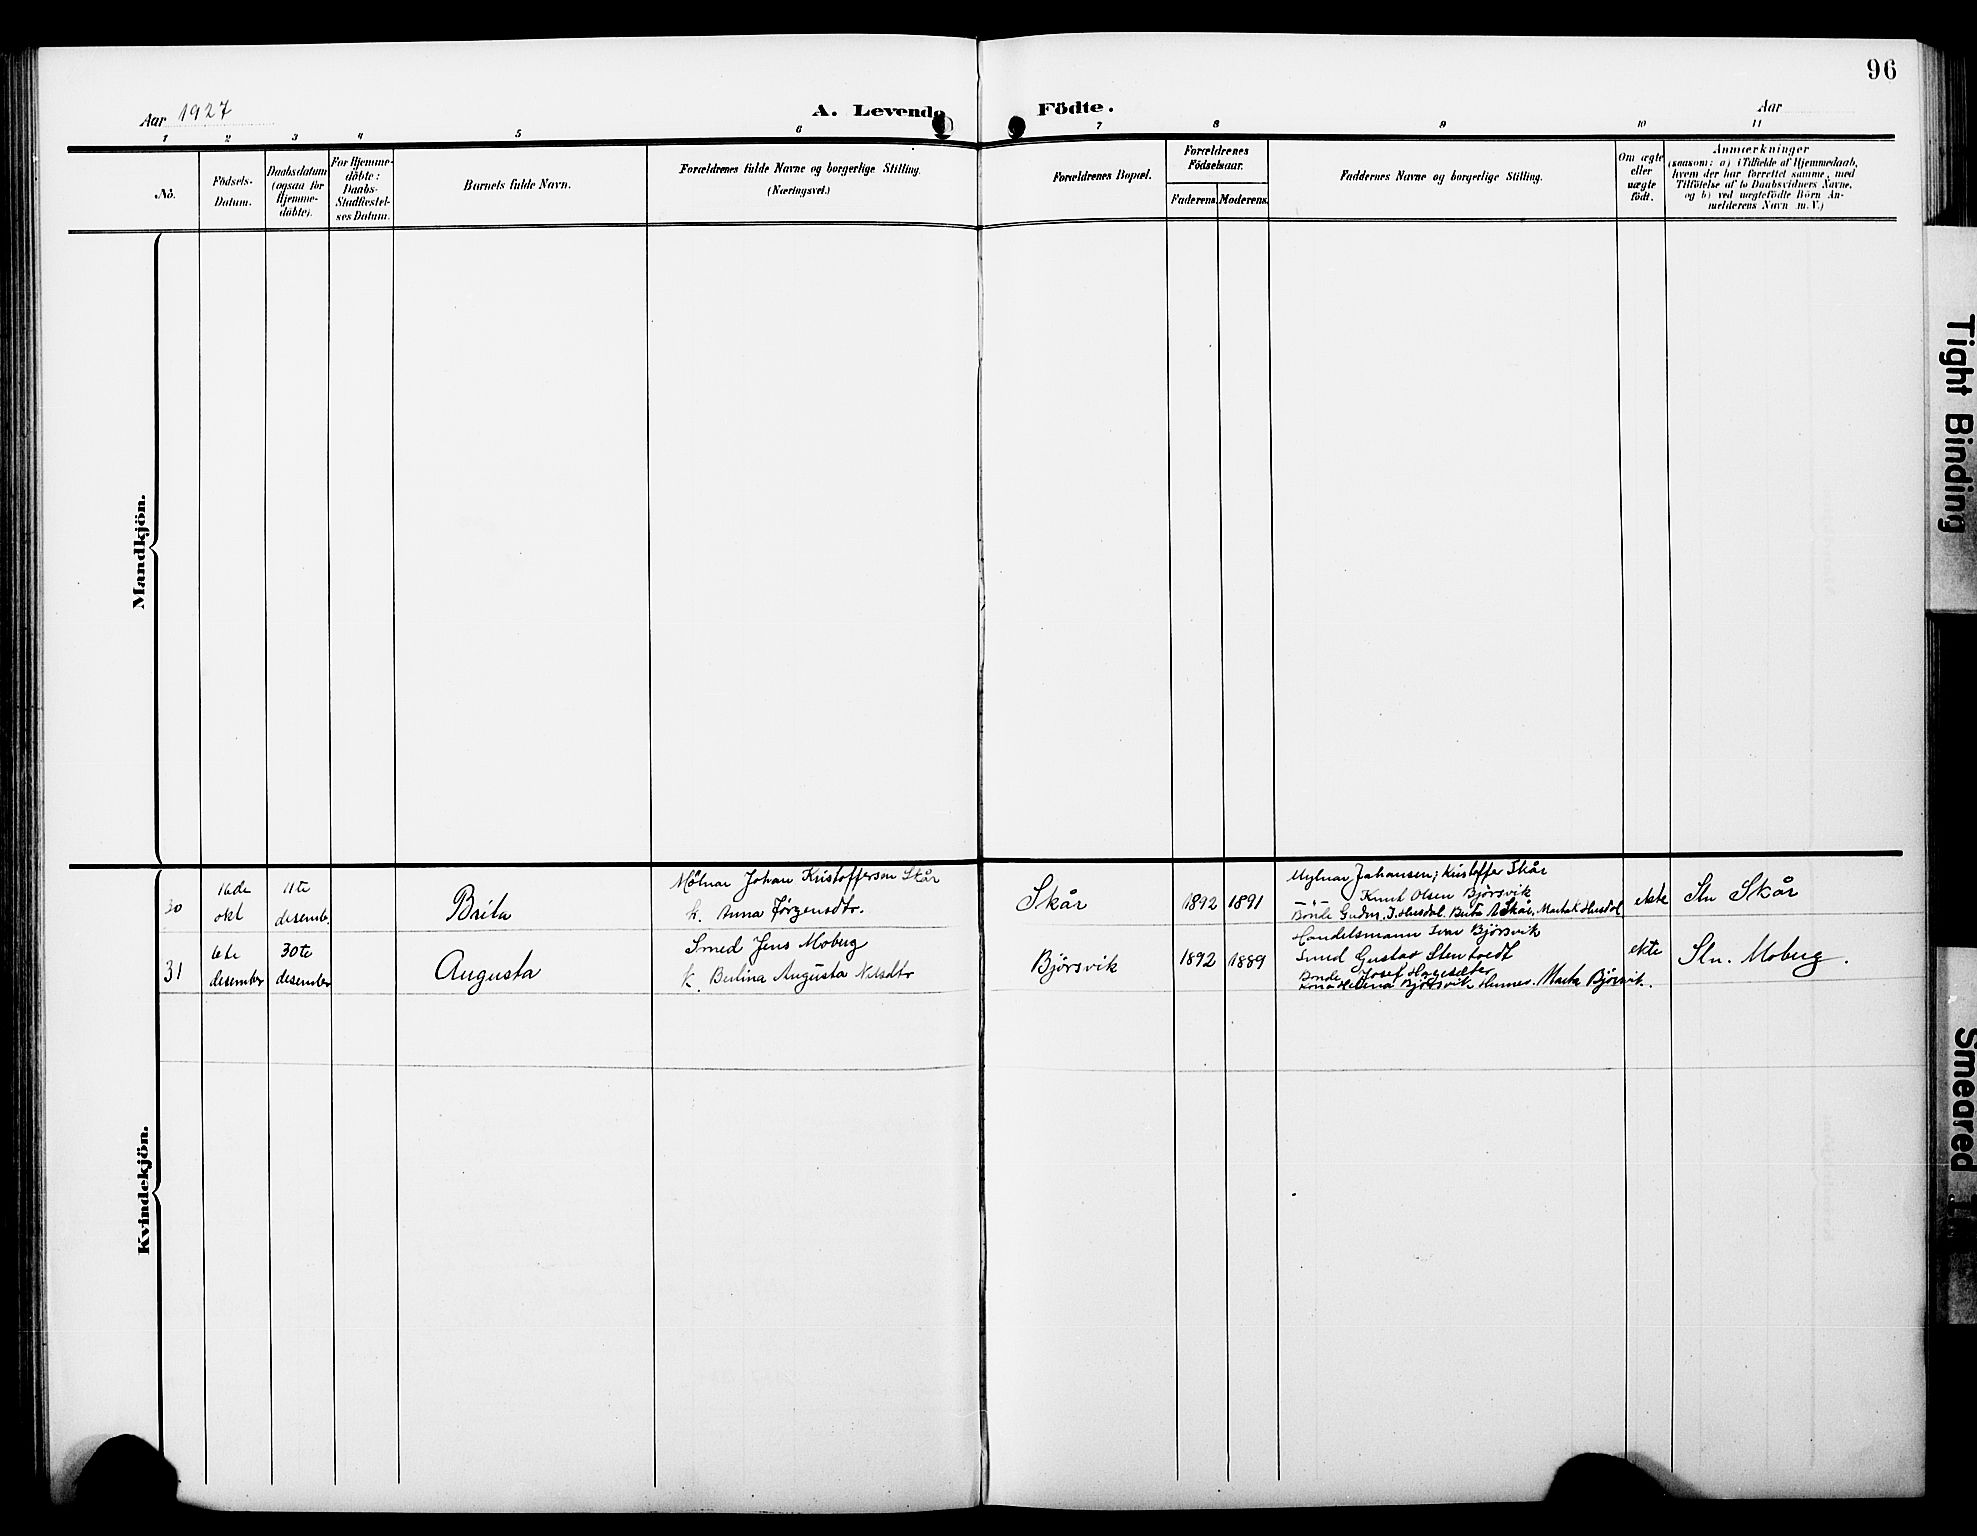 96
Aar 1927
A. Levende Födte.
Aar
1 2 3 4 5 6 7 8 9 10 11
No.
Födsels-
Datum.
Daabsdatum
(ogsaa for
Hjemme-
döbte).
For Hjemme-
döbte:
Daabs-
Stadfæstel-
ses Datum.
Barnets fulde Navn.
Forældrenes fulde Navne og borgerlige Stilling.
(Næringsvei.)
Forældrenes Bopæl.
Forældrenes
Födselsaar.
Faderens. Moderens.
Faddernes Navne og borgerlige Stilling.
Om ægte
eller
uægte
födt.
Anmærkninger
(saasom: a) i Tilfælde af Hjemmedaab,
hvem der har forrettet samme, med
Tilföielse af to Daabsvidners Navne,
og b) ved uægtefödte Börn An-
melderens Navn m. V.)
Mandkjön.
Kvindekjön.
30
16de
okt
11te
desemb.
Brita
Mølnar Johan Kristoffersen Skår
k. Anna Jørgensdtr.
Skår
1892 1891
Mylnar Johansen; Kristoffer Skår
—"— Knut Olsen Bjørsvik
Bonde Gudm. J. Husdal. Brita A Skår, Marta K Husdal
ekte
Stn Skår
31
6te
desember
30te
desember
Augusta
Smed Jens Moberg
k. Berlina Augusta Nilsdtr
Bjørsvik
1892 1889
Handelsmann Ivar Bjørsvik
Smed Gustav Stentvedt
Bonde Josef Hagesæter
Kona Helena Bjørsvik Marta Bjørsvik.
ekte
Stn. Moberg.
Tight Binding
Smeared